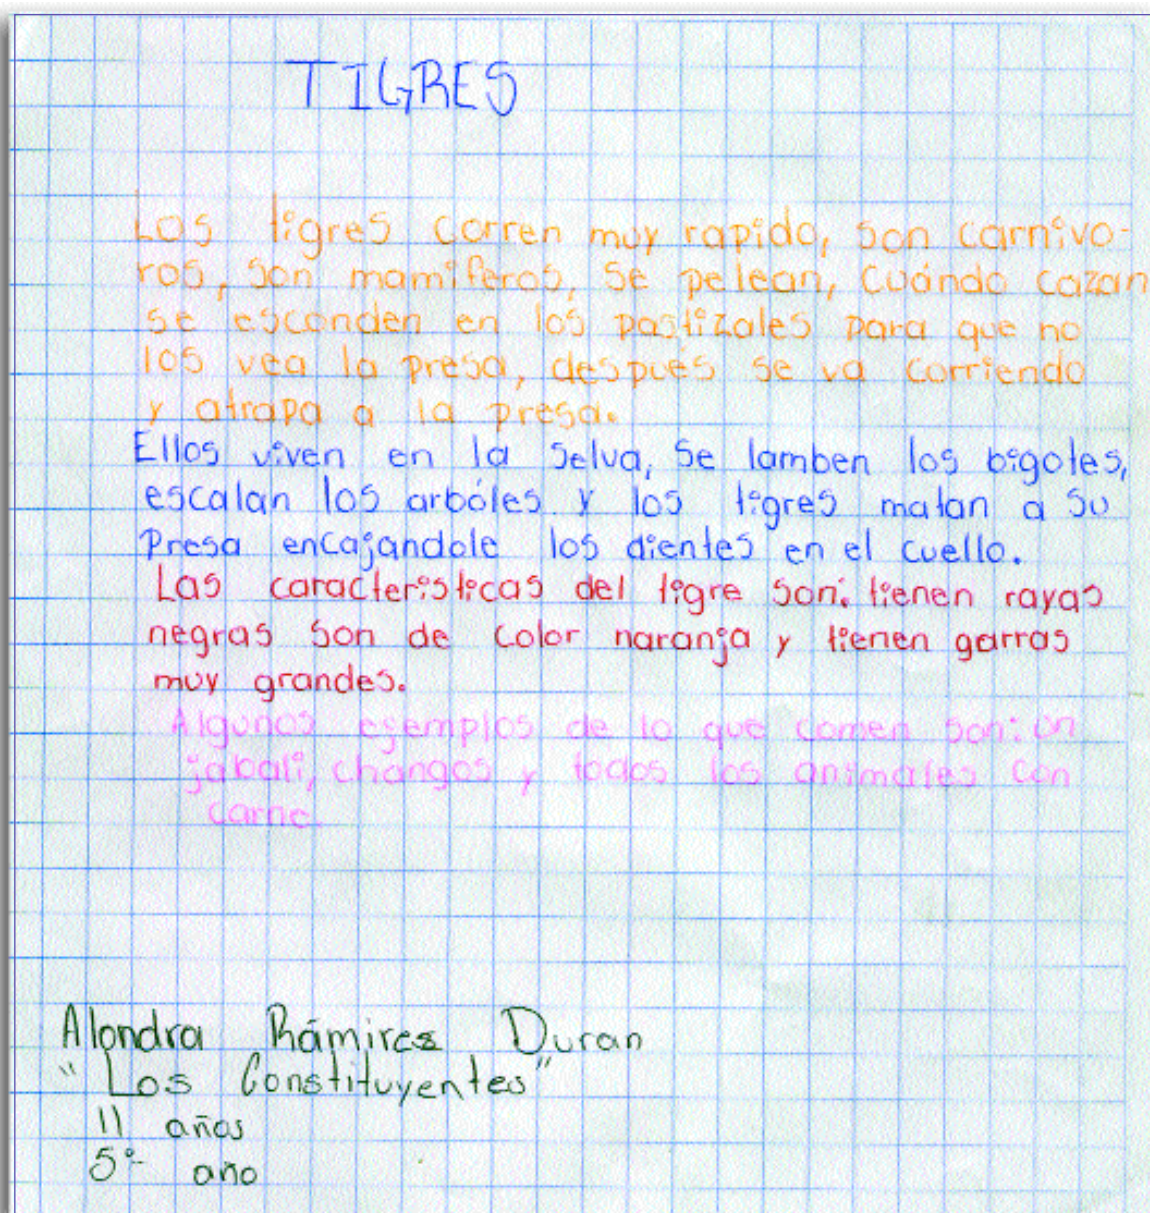 TIGRES
Los tigres corren muy rapido, son carnivo-
ros, son mamiferos, se pelean, Cuándo cazan
se esconden en los pastizales para que no
los vea la presa, despues se va corriendo
y atrapa a la presa.
Ellos viven en la selva, se lamben los bigotes,
escalan los arbóles y los tigres matan a su
presa encajandole los dientes en el cuello.
Las caracteristicas del tigre son: tienen rayas
negras son de color naranja y tienen garras
muy grandes.
Algunos ejemplos de lo que comen son: un
jabali, changos y todos los animales con
carne.
Alondra Rámires Duran
"Los Constituyentes"
11 años
5° año